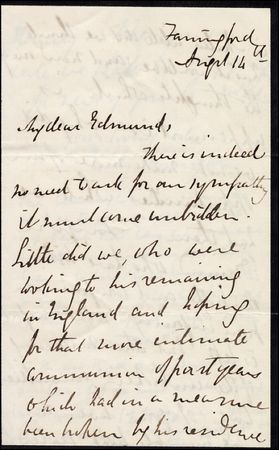 Farringford
Augt 14th
My dear Edmund,
There is indeed
no need to ask for our sympathy
it must come unbidden.
Little did we, who were
looking to his remaining
in England and hoping
for that more intimate
communion of past years
which had in a measure
been broken by his residence